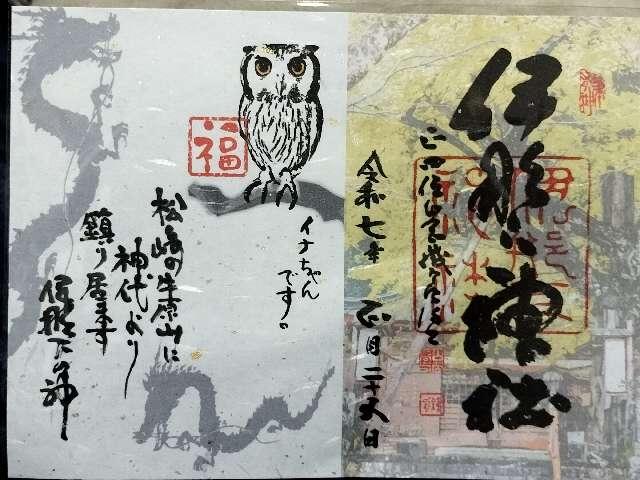 伊那下神社
令和七年 正月二十五日
福
イナちゃん
です。
松崎の牛原山に
神代より
鎮り居ます
伊那下の神